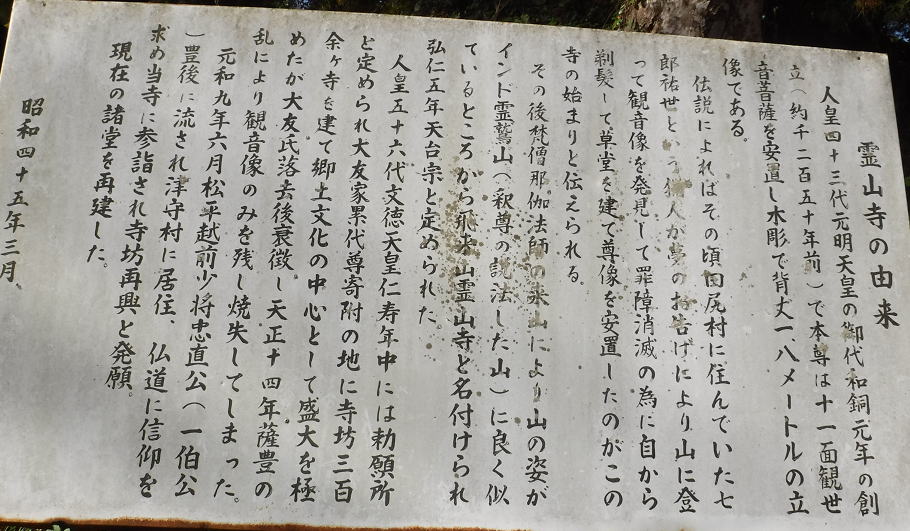 霊山寺の由来
人皇四十三代元明天皇の御代和銅元年の創
立（約千二百五十年前）で本尊は十一面観世
音菩薩を安置し木彫で背丈一、八メートルの立
像である。
伝説によればその頃田尻村に住んでいた七
郎祐世という猟人が夢のお告げにより山に登
って観音像を発見して罪障消滅の為に自から
剃髪して草堂を建て尊像を安置したのがこの
寺の始まりと伝えられる。
その後梵僧那伽法師の来山により山の姿が
インド霊鷲山（釈尊の説法した山）に良く似
ているところから飛来山霊山寺と名付けられ
弘仁五年天台宗と定められた。
人皇五十六代文徳天皇仁寿年中には勅願所
と定められ大友家累代尊寄附の地に寺坊三百
余ヶ寺を建て郷土文化の中心として盛大を極
めたが大友氏落去後衰微し天正十四年薩豊の
乱により観音像のみを残し焼失してしまった。
元和九年六月松平越前少将忠直公（一伯公
）豊後に流され津守村に居住、仏道に信仰を
求め当寺に参詣され寺坊再興と発願。
現在の諸堂を再建した。
昭和四十五年三月、